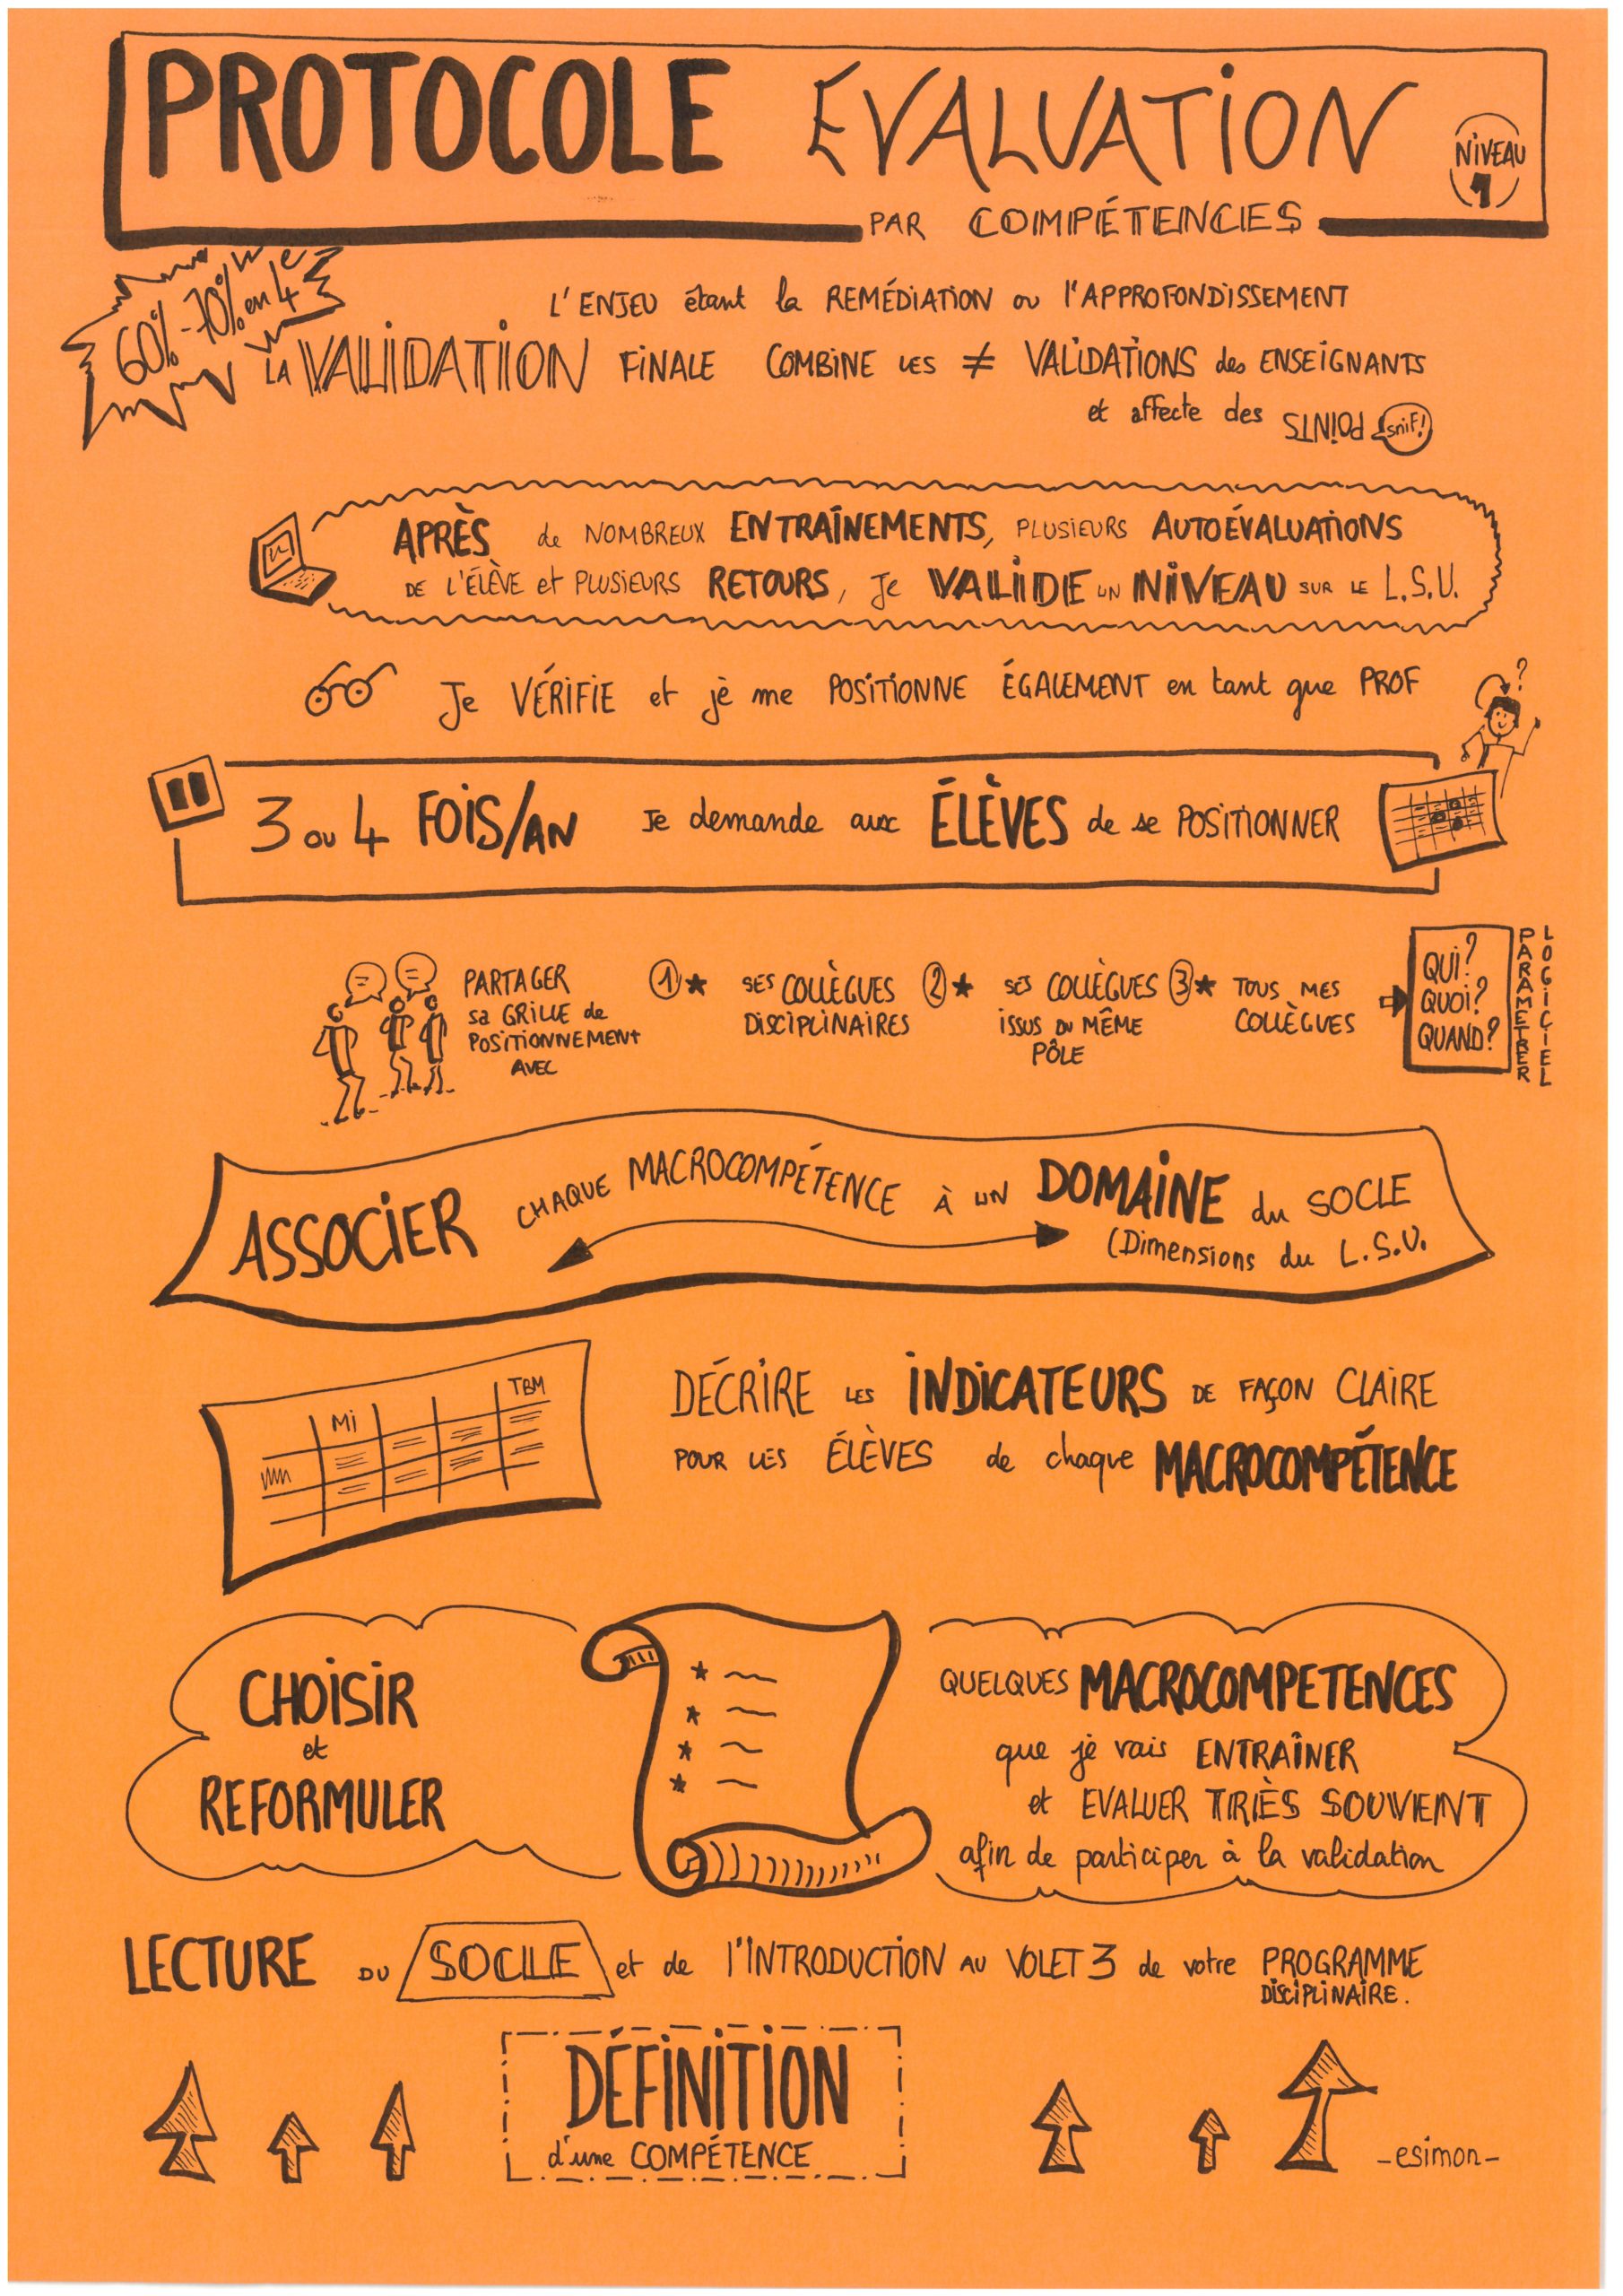 PROTOCOLE EVALUATION
NIVEAU
1
PAR COMPÉTENCES
60%-70% en 4e
L'ENJEU étant la REMÉDIATION ou l'APPROFONDISSEMENT
LA VALIDATION FINALE COMBINE LES ≠ VALIDATIONS des ENSEIGNANTS
et affecte des POINTS snif!
APRÈS de NOMBREUX ENTRAÎNEMENTS, PLUSIEURS AUTOÉVALUATIONS
DE L'ÉLÈVE et PLUSIEURS RETOURS, Je VALIDE UN NIVEAU SUR LE L.S.U.
Je VÉRIFIE et je me POSITIONNE ÉGALEMENT en tant que PROF
?
3 ou 4 FOIS/AN Je demande aux ÉLÈVES de se POSITIONNER
PARTAGER
sa GRILLE de
POSITIONNEMENT
AVEC
1 * SES COLLÈGUES
DISCIPLINAIRES
2 * SES COLLÈGUES
ISSUS DU MÊME
PÔLE
3 * TOUS MES
COLLÈGUES
QUI?
QUOI?
QUAND?
PARAMETRER
LOGICIEL
ASSOCIER CHAQUE MACROCOMPÉTENCE À UN DOMAINE du SOCLE
(Dimensions du L.S.U.
MI
TBM
DÉCRIRE LES INDICATEURS DE FAÇON CLAIRE
POUR LES ÉLÈVES de chaque MACROCOMPÉTENCE
CHOISIR
et
REFORMULER
QUELQUES MACROCOMPETENCES
que je vais ENTRAÎNER
et EVALUER TRÈS SOUVENT
afin de participer à la validation
LECTURE DU SOCLE et de l'INTRODUCTION AU VOLET 3 de votre PROGRAMME
DISCIPLINAIRE.
DÉFINITION
d'une COMPÉTENCE
-esimon-